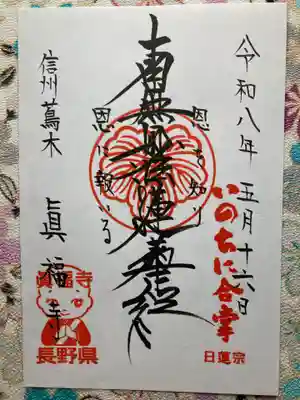 令和八年 五月十六日
いのちに合掌
日蓮宗
恩を知り
南無妙法蓮華経
恩に報いる
信州蔦木
眞福寺
眞福寺
長野県